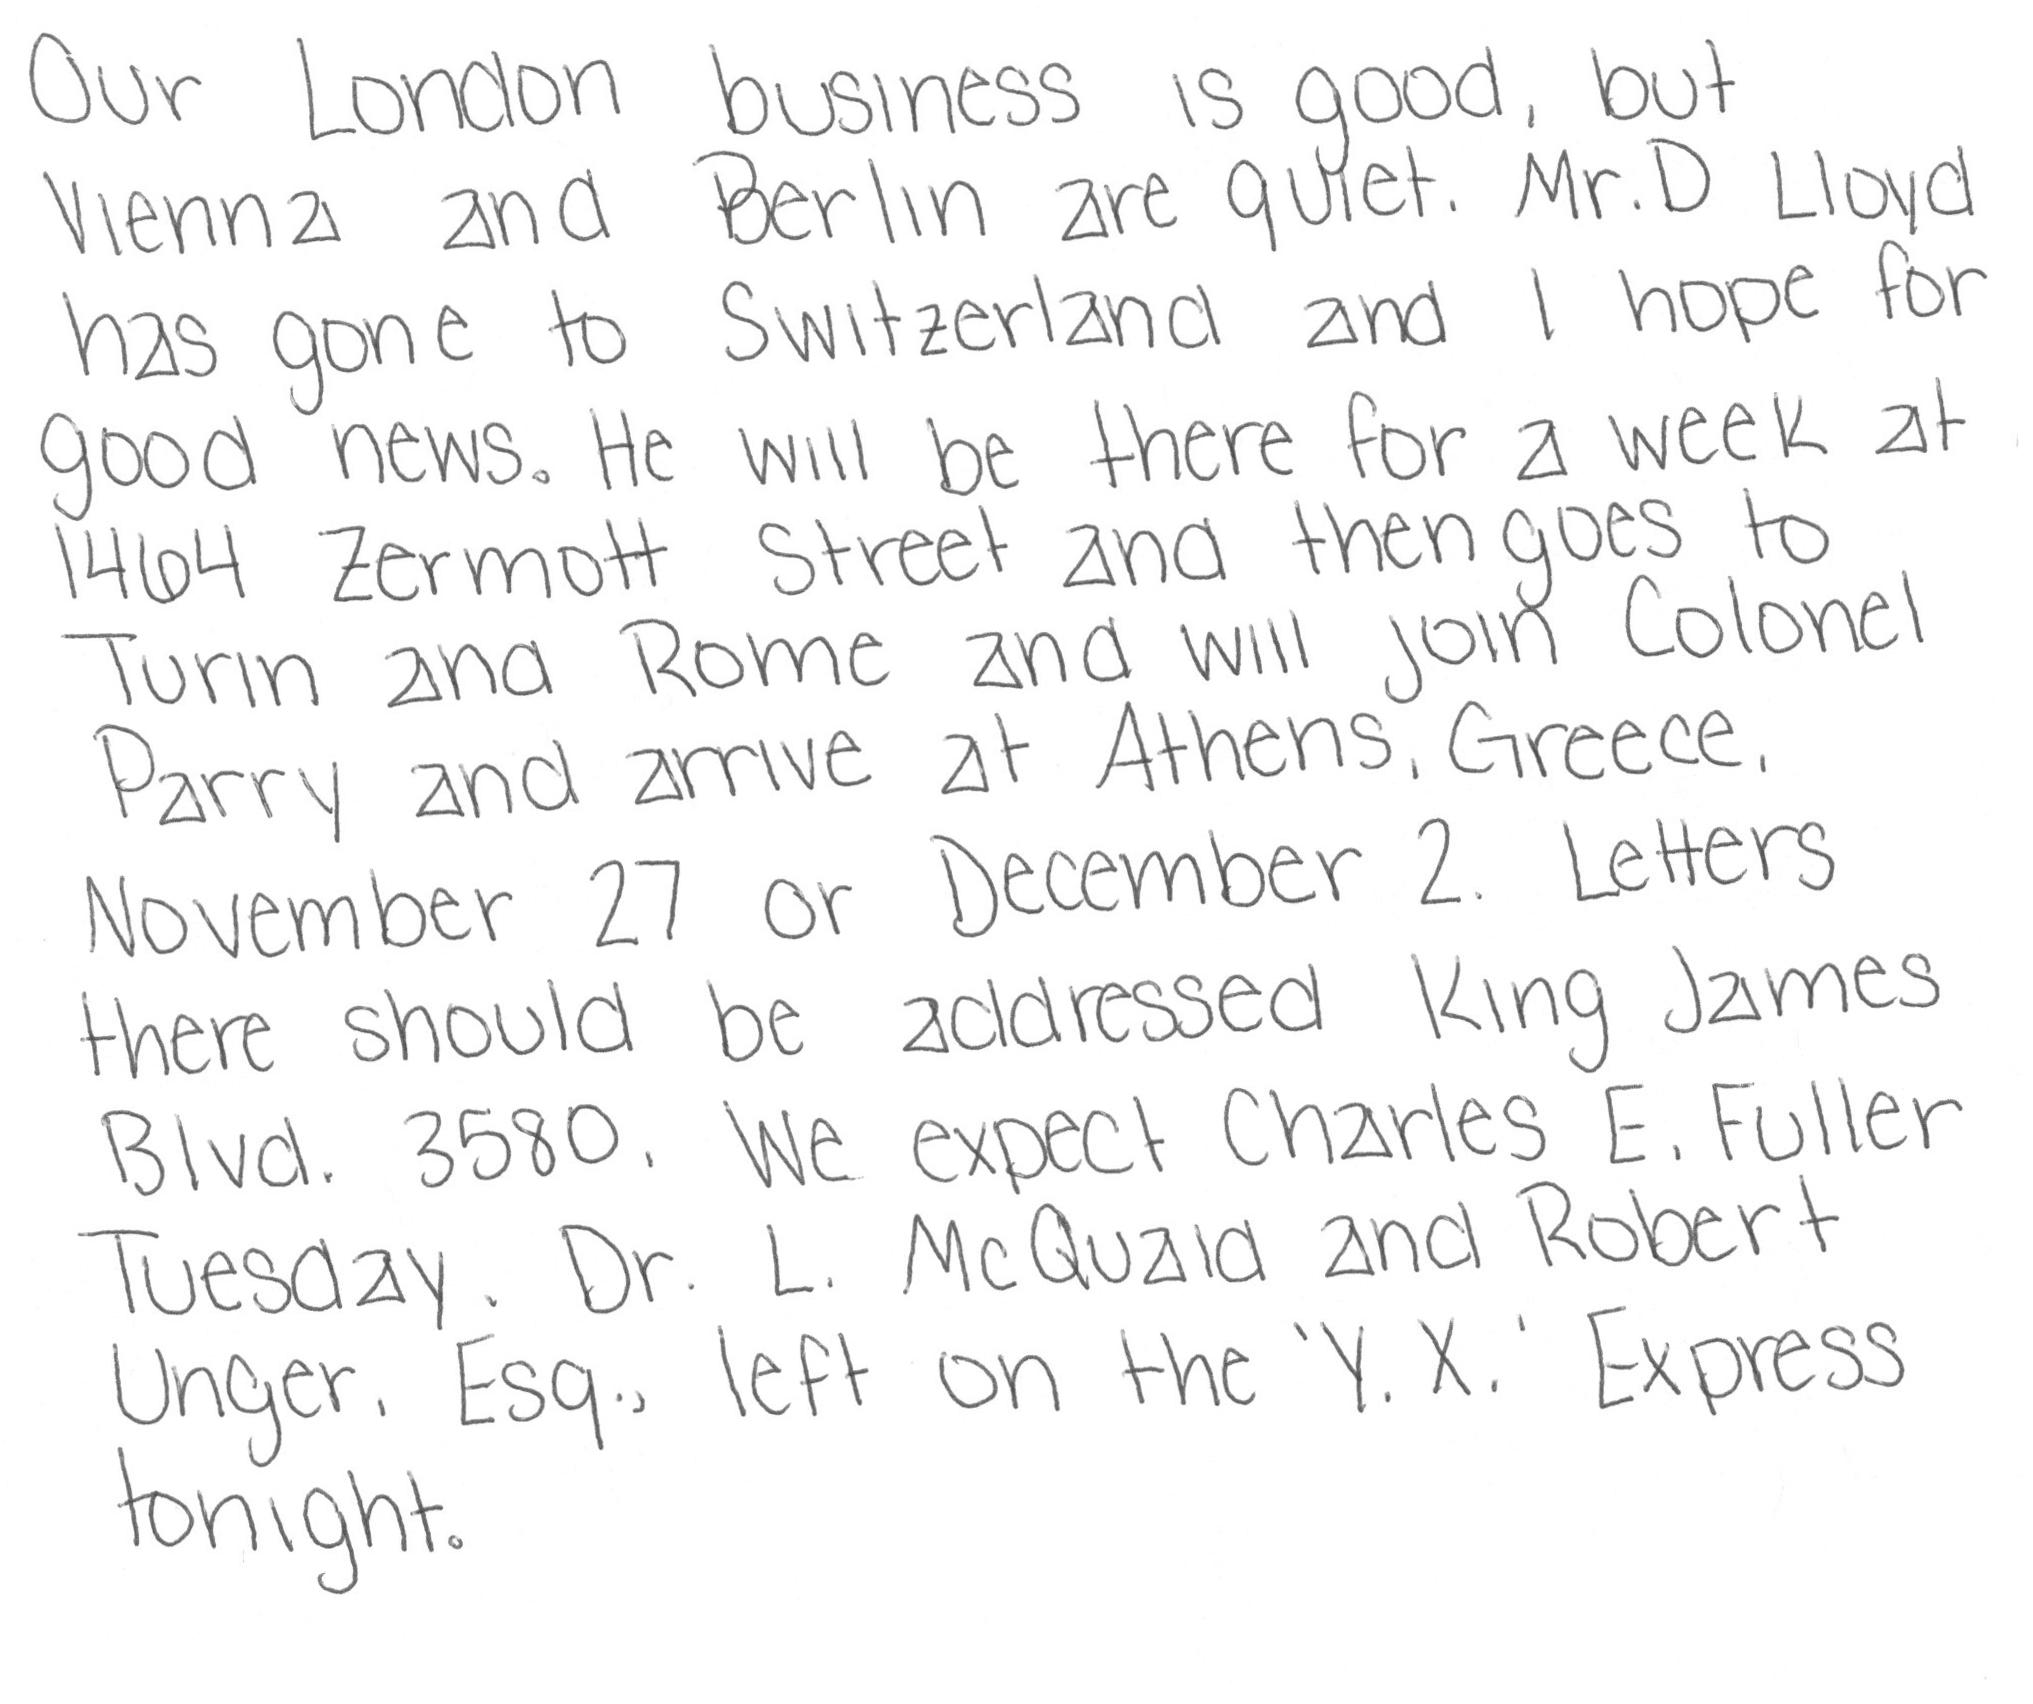 Our London business is good, but
Vienna and Berlin are quiet. Mr. D Lloyd
has gone to Switzerland and I hope for
good news. He will be there for a week at
1464 Zermott Street and then goes to
Turin and Rome and will join Colonel
Parry and arrive at Athens, Greece,
November 27 or December 2. Letters
there should be addressed King James
Blvd. 3580. We expect Charles E. Fuller
Tuesday. Dr. L. McQuaid and Robert
Unger, Esq., left on the 'Y. X.' Express
tonight.